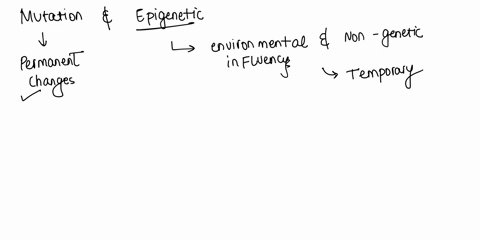 Mutation & Epigenetic
environmental & Non-genetic
Permanent inFluency
Changes Temporary